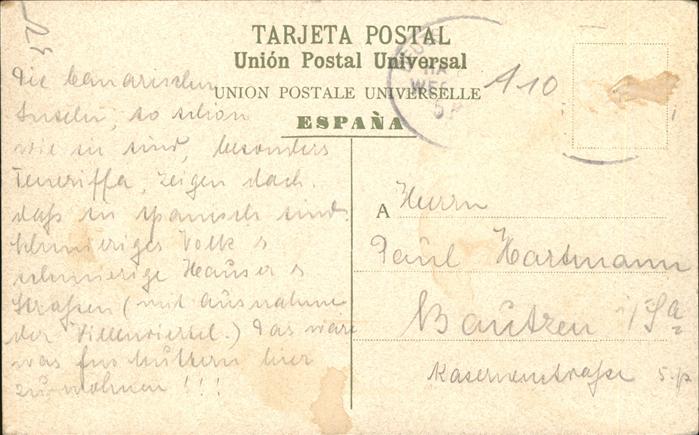 TARJETA POSTAL
Unión Postal Universal
UNION POSTALE UNIVERSELLE
ESPAÑA
A 10
Die canarischen
Inseln, so schön
wie sie sind, besonders
Teneriffa, zeigen doch
daß sie spanisch sind.
Schmieriges Volk &
schmierige Häuser &
Straßen (mit Ausnahme
der Villenviertel.) Das wäre
was für Muttern hier
zu wohnen!!!
A Herrn
Paul Hartmann
Bautzen i/Sa
Kasernenstraße 5.p